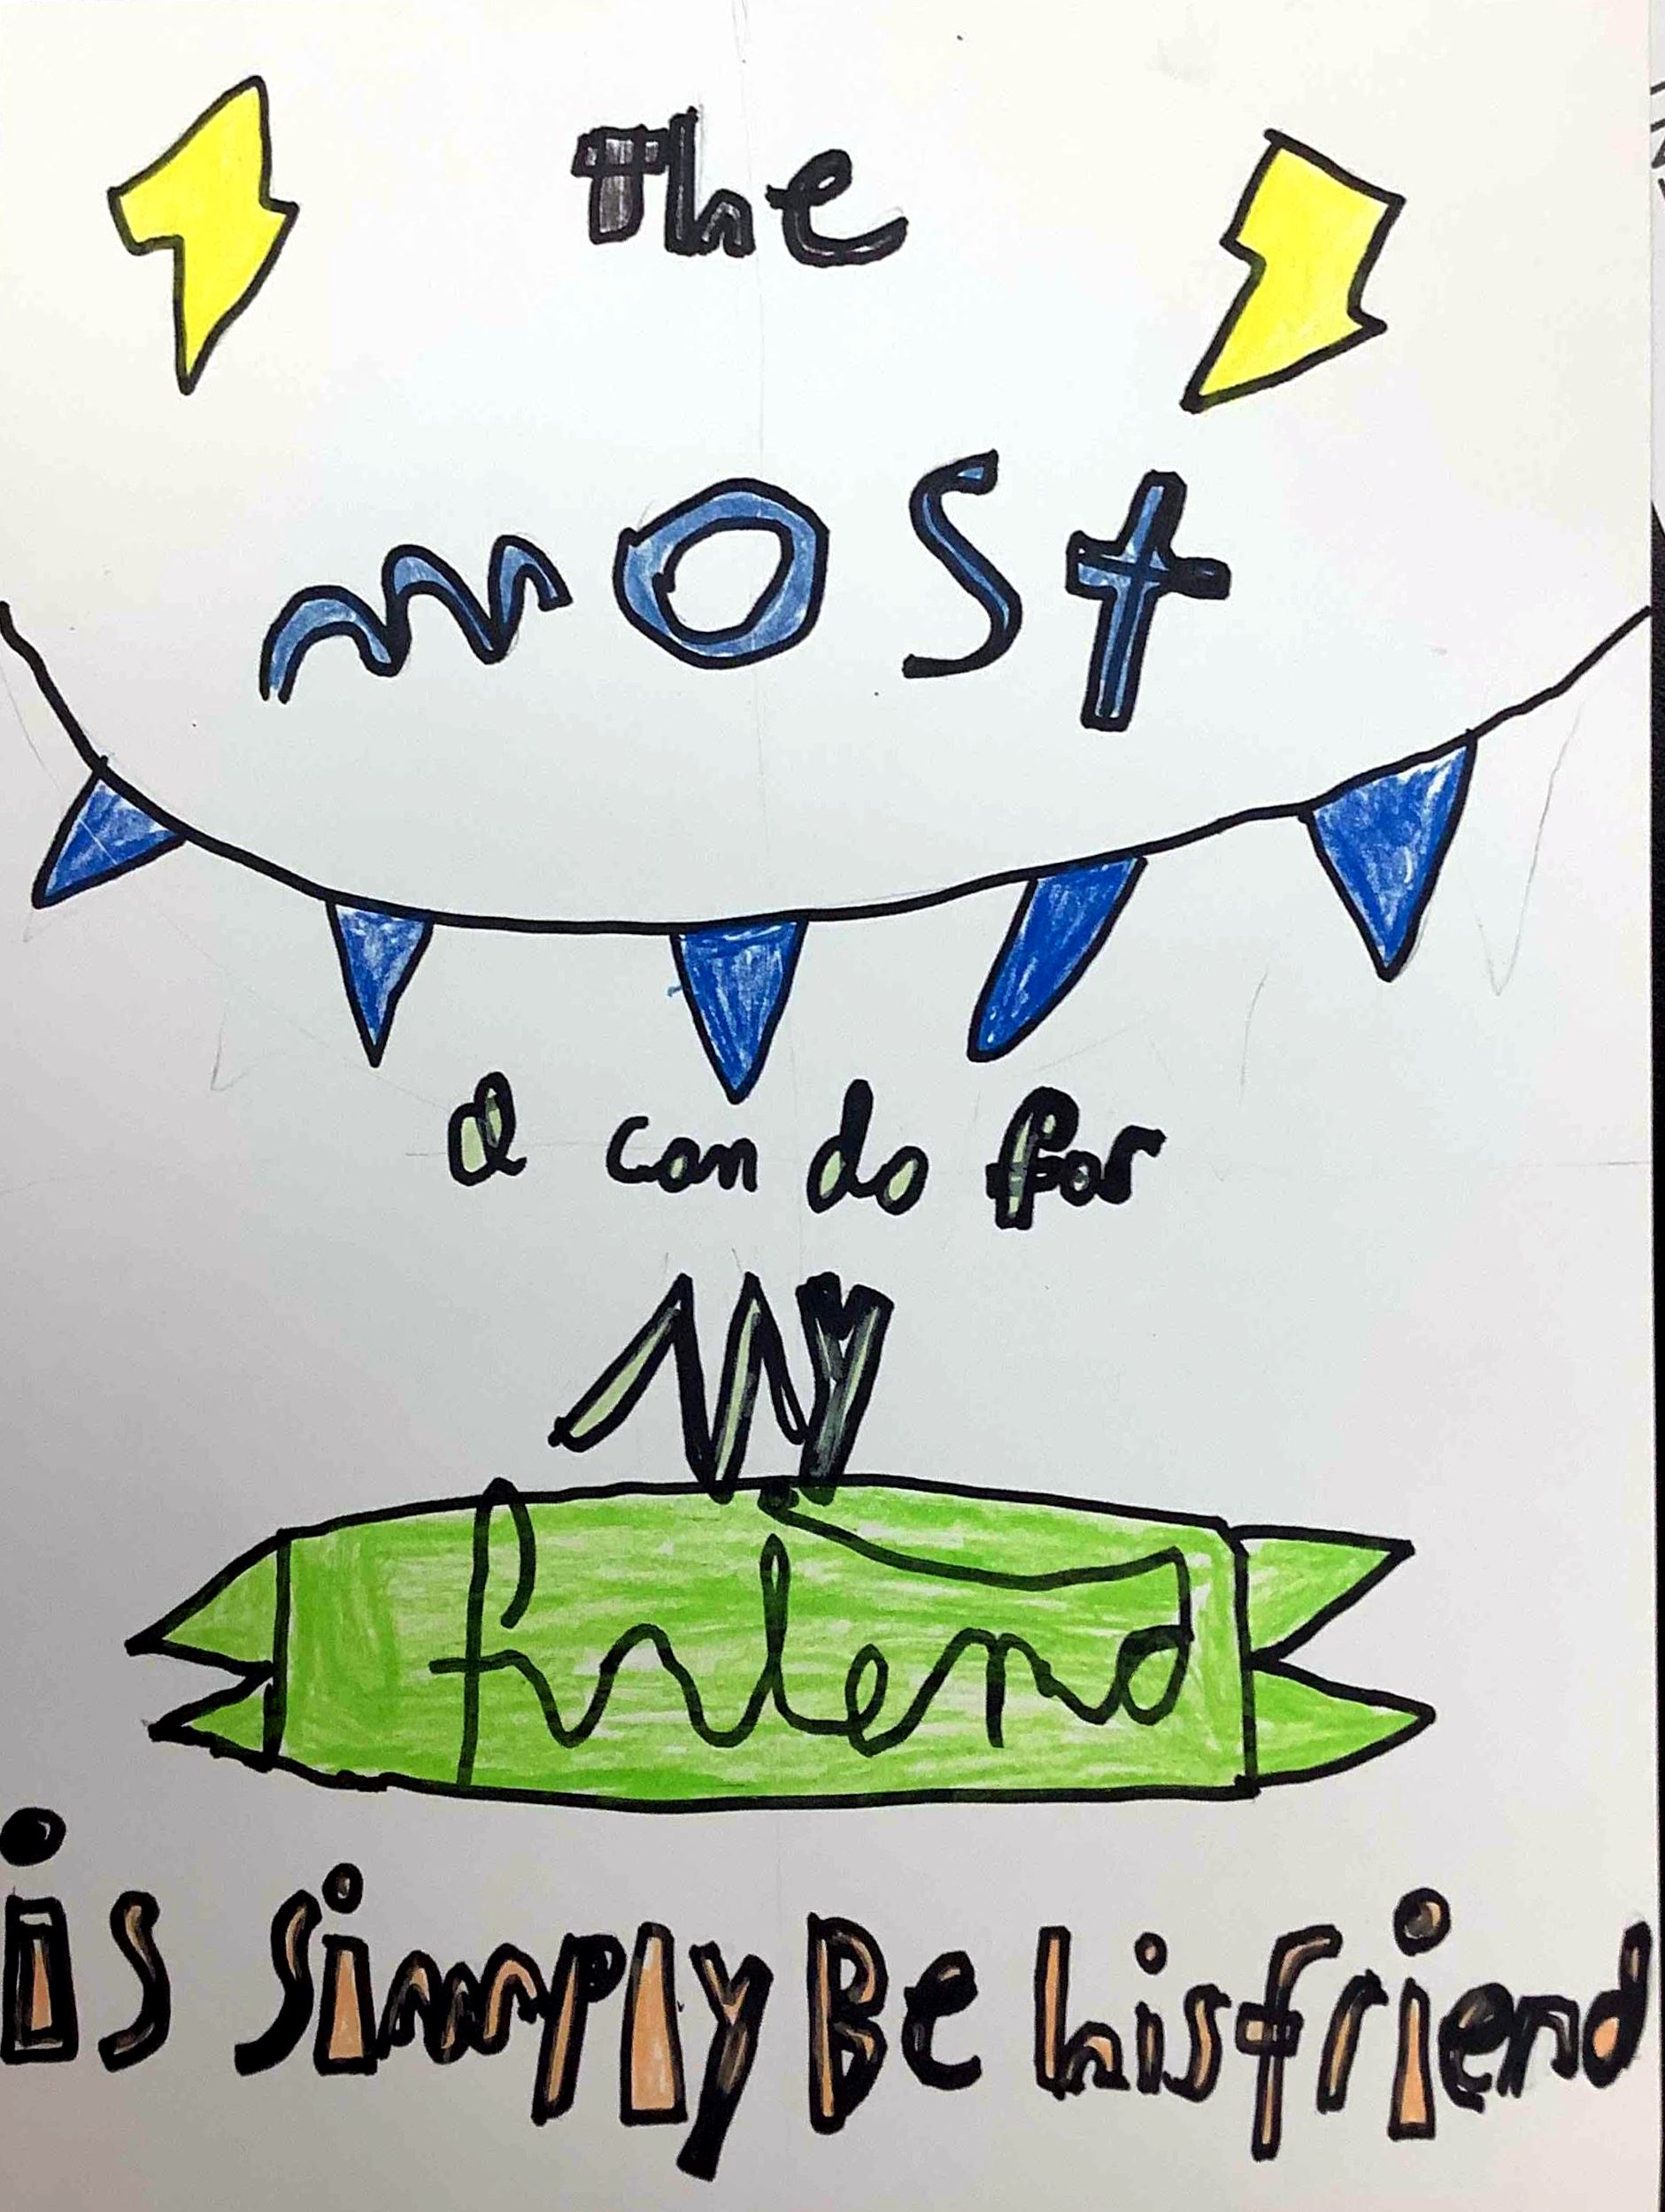 The
most
I can do for
My
friend
is simply Be his friend